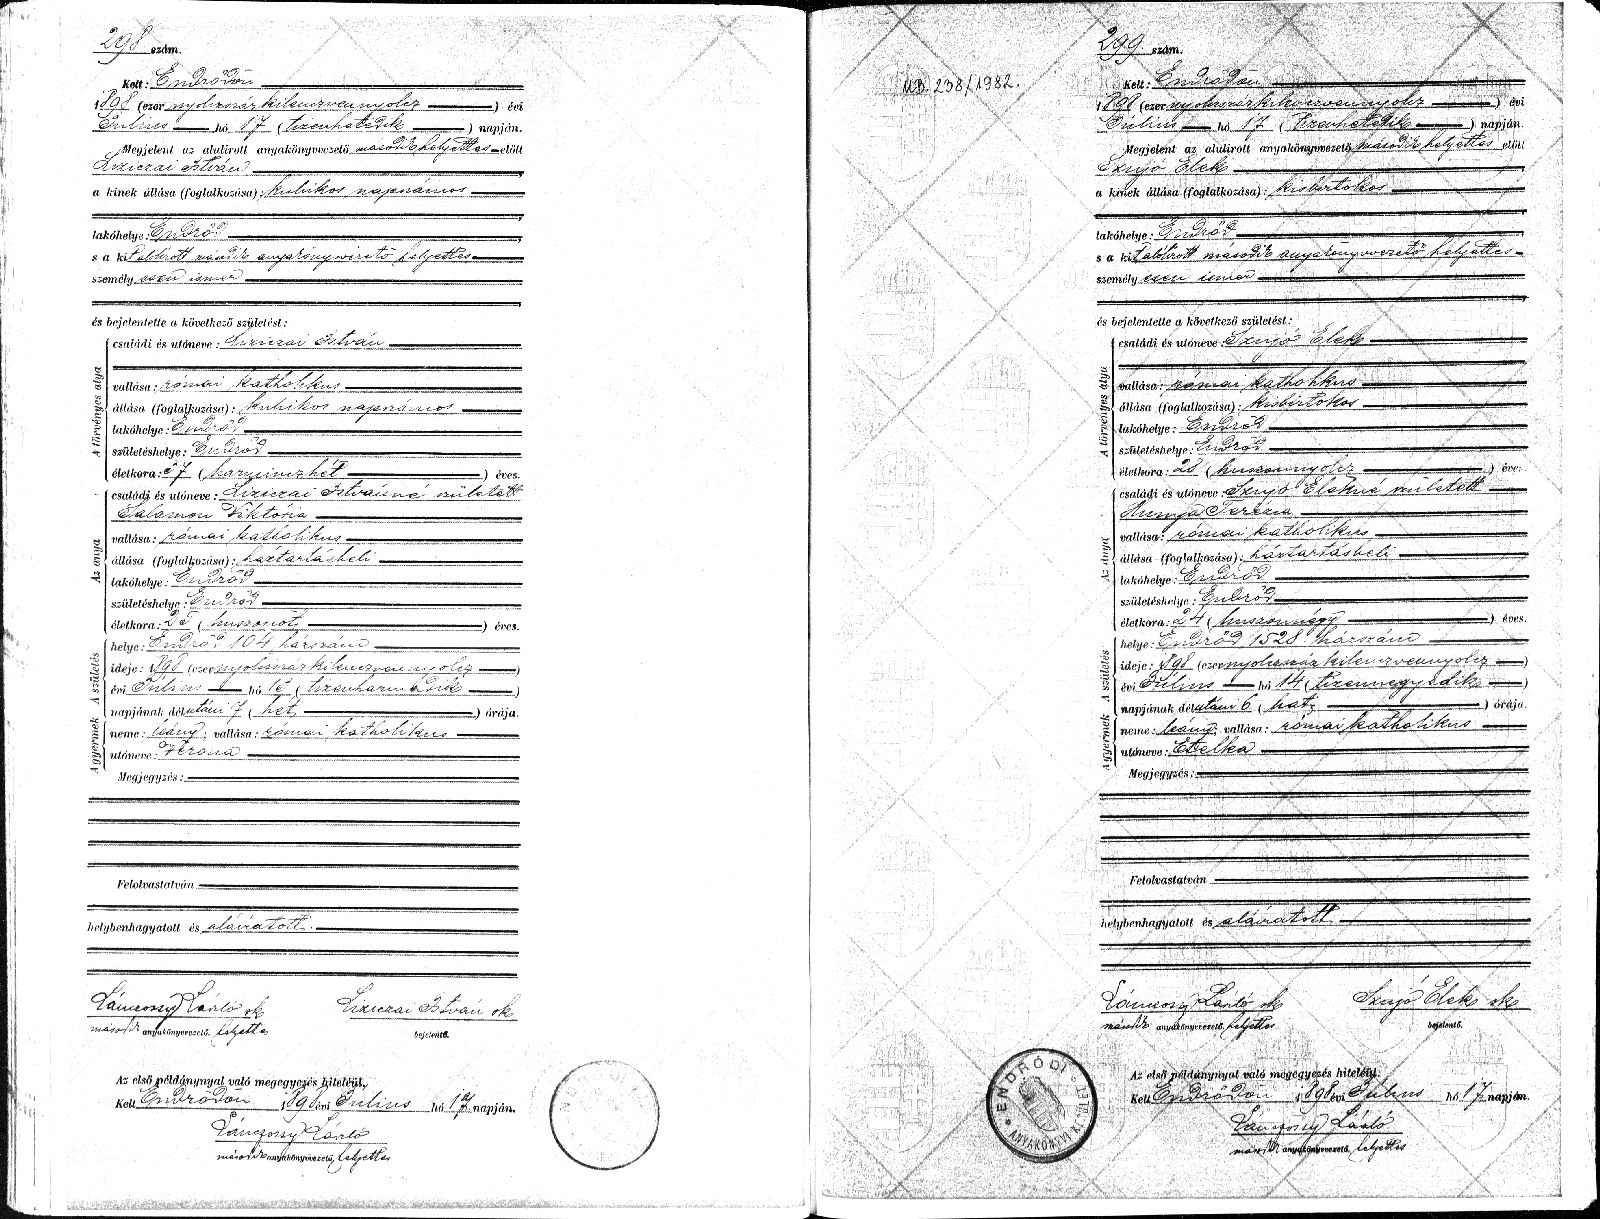 298 szám.
Kelt: Endrődön
1898 (ezer nyolczszázkilenczvennyolcz) évi
Július hó 17 (tizenhetedik) napján.
Megjelent az alulirott anyakönyvvezető második helyettes előtt
Liziczai István
a kinek állása (foglalkozása): kubikos napszámos
lakóhelye: Endrőd
s a kit alólirott második anyakönyvvezető helyettes
személyesen ismer
és bejelentette a következő születést:
A törvényes atya
családi és utóneve: Liziczai István
vallása: római katholikus
állása (foglalkozása): kubikos napszámos
lakóhelye: Endrőd
születéshelye: Endrőd
életkora: 37 (harminczhét) éves.
Az anya
családi és utóneve: Liziczai Istvánné született
Salamon Viktória
vallása: római katholikus
állása (foglalkozása): háztartásbeli
lakóhelye: Endrőd
születéshelye: Endrőd
életkora: 25 (huszonöt) éves.
A születés
helye: Endrőd 104 házszám
ideje: 1898 (ezer nyolczszázkilenczvennyolcz)
évi Július hó 13 (tizenharmadik)
napjának délutáni 7 (hét) órája.
A gyermek
neme: leány; vallása: római katholikus
utóneve: Verona
Megjegyzés:
Felolvastatván
helybenhagyatott és aláiratott.
Lánczossy László sk Liziczai István sk
második anyakönyvvezető helyettes bejelentő.
Az első példánynyal való megegyezés hiteléül,
Kelt Endrődön 1898 évi Július hó 17 napján.
Lánczossy László
második anyakönyvvezető helyettes
UB. 238/1982.
299 szám.
Kelt: Endrődön
1898 (ezer nyolczszázkilenczvennyolcz) évi
Július hó 17 (tizenhetedik) napján.
Megjelent az alulirott anyakönyvvezető második helyettes előtt
Szujó Elek
a kinek állása (foglalkozása): kisbirtokos
lakóhelye: Endrőd
s a kit alólirott második anyakönyvvezető helyettes
személyesen ismer
és bejelentette a következő születést:
A törvényes atya
családi és utóneve: Szujó Elek
vallása: római katholikus
állása (foglalkozása): kisbirtokos
lakóhelye: Endrőd
születéshelye: Endrőd
életkora: 28 (huszonnyolcz) éves.
Az anya
családi és utóneve: Szujó Elekné született
Hunya Terézia
vallása: római katholikus
állása (foglalkozása): háztartásbeli
lakóhelye: Endrőd
születéshelye: Endrőd
életkora: 24 (huszonnégy) éves.
A születés
helye: Endrőd, 1528 házszám
ideje: 1898 (ezer nyolczszázkilenczvennyolcz)
évi Július hó 14 (tizennegyedik)
napjának délutáni 6 (hat) órája.
A gyermek
neme: leány; vallása: római katholikus
utóneve: Etelka
Megjegyzés:
Felolvastatván
helybenhagyatott és aláiratott
Lánczossy László sk Szujó Elek sk
második anyakönyvvezető, helyettes bejelentő.
ENDRŐDI
ANYAKÖNYVI KERÜLET
Az első példánynyal való megegyezés hiteléül:
Kelt Endrődön 1898 évi Július hó 17 napján.
Lánczossy László
második anyakönyvvezető, helyettes